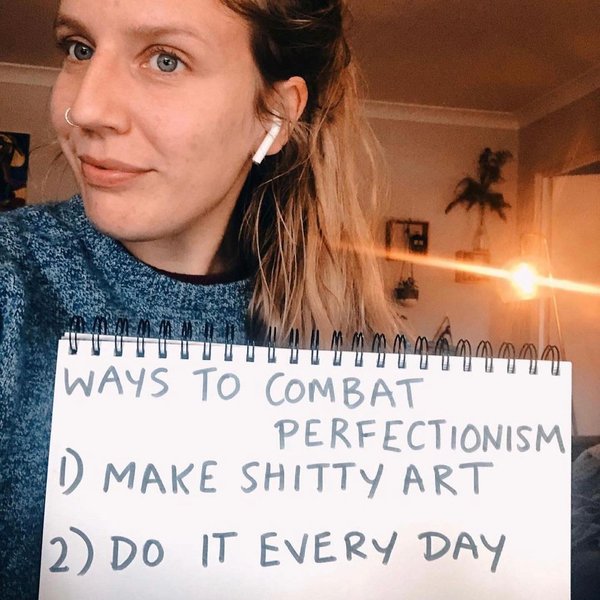 WAYS TO COMBAT
PERFECTIONISM
1) MAKE SHITTY ART
2) DO IT EVERY DAY